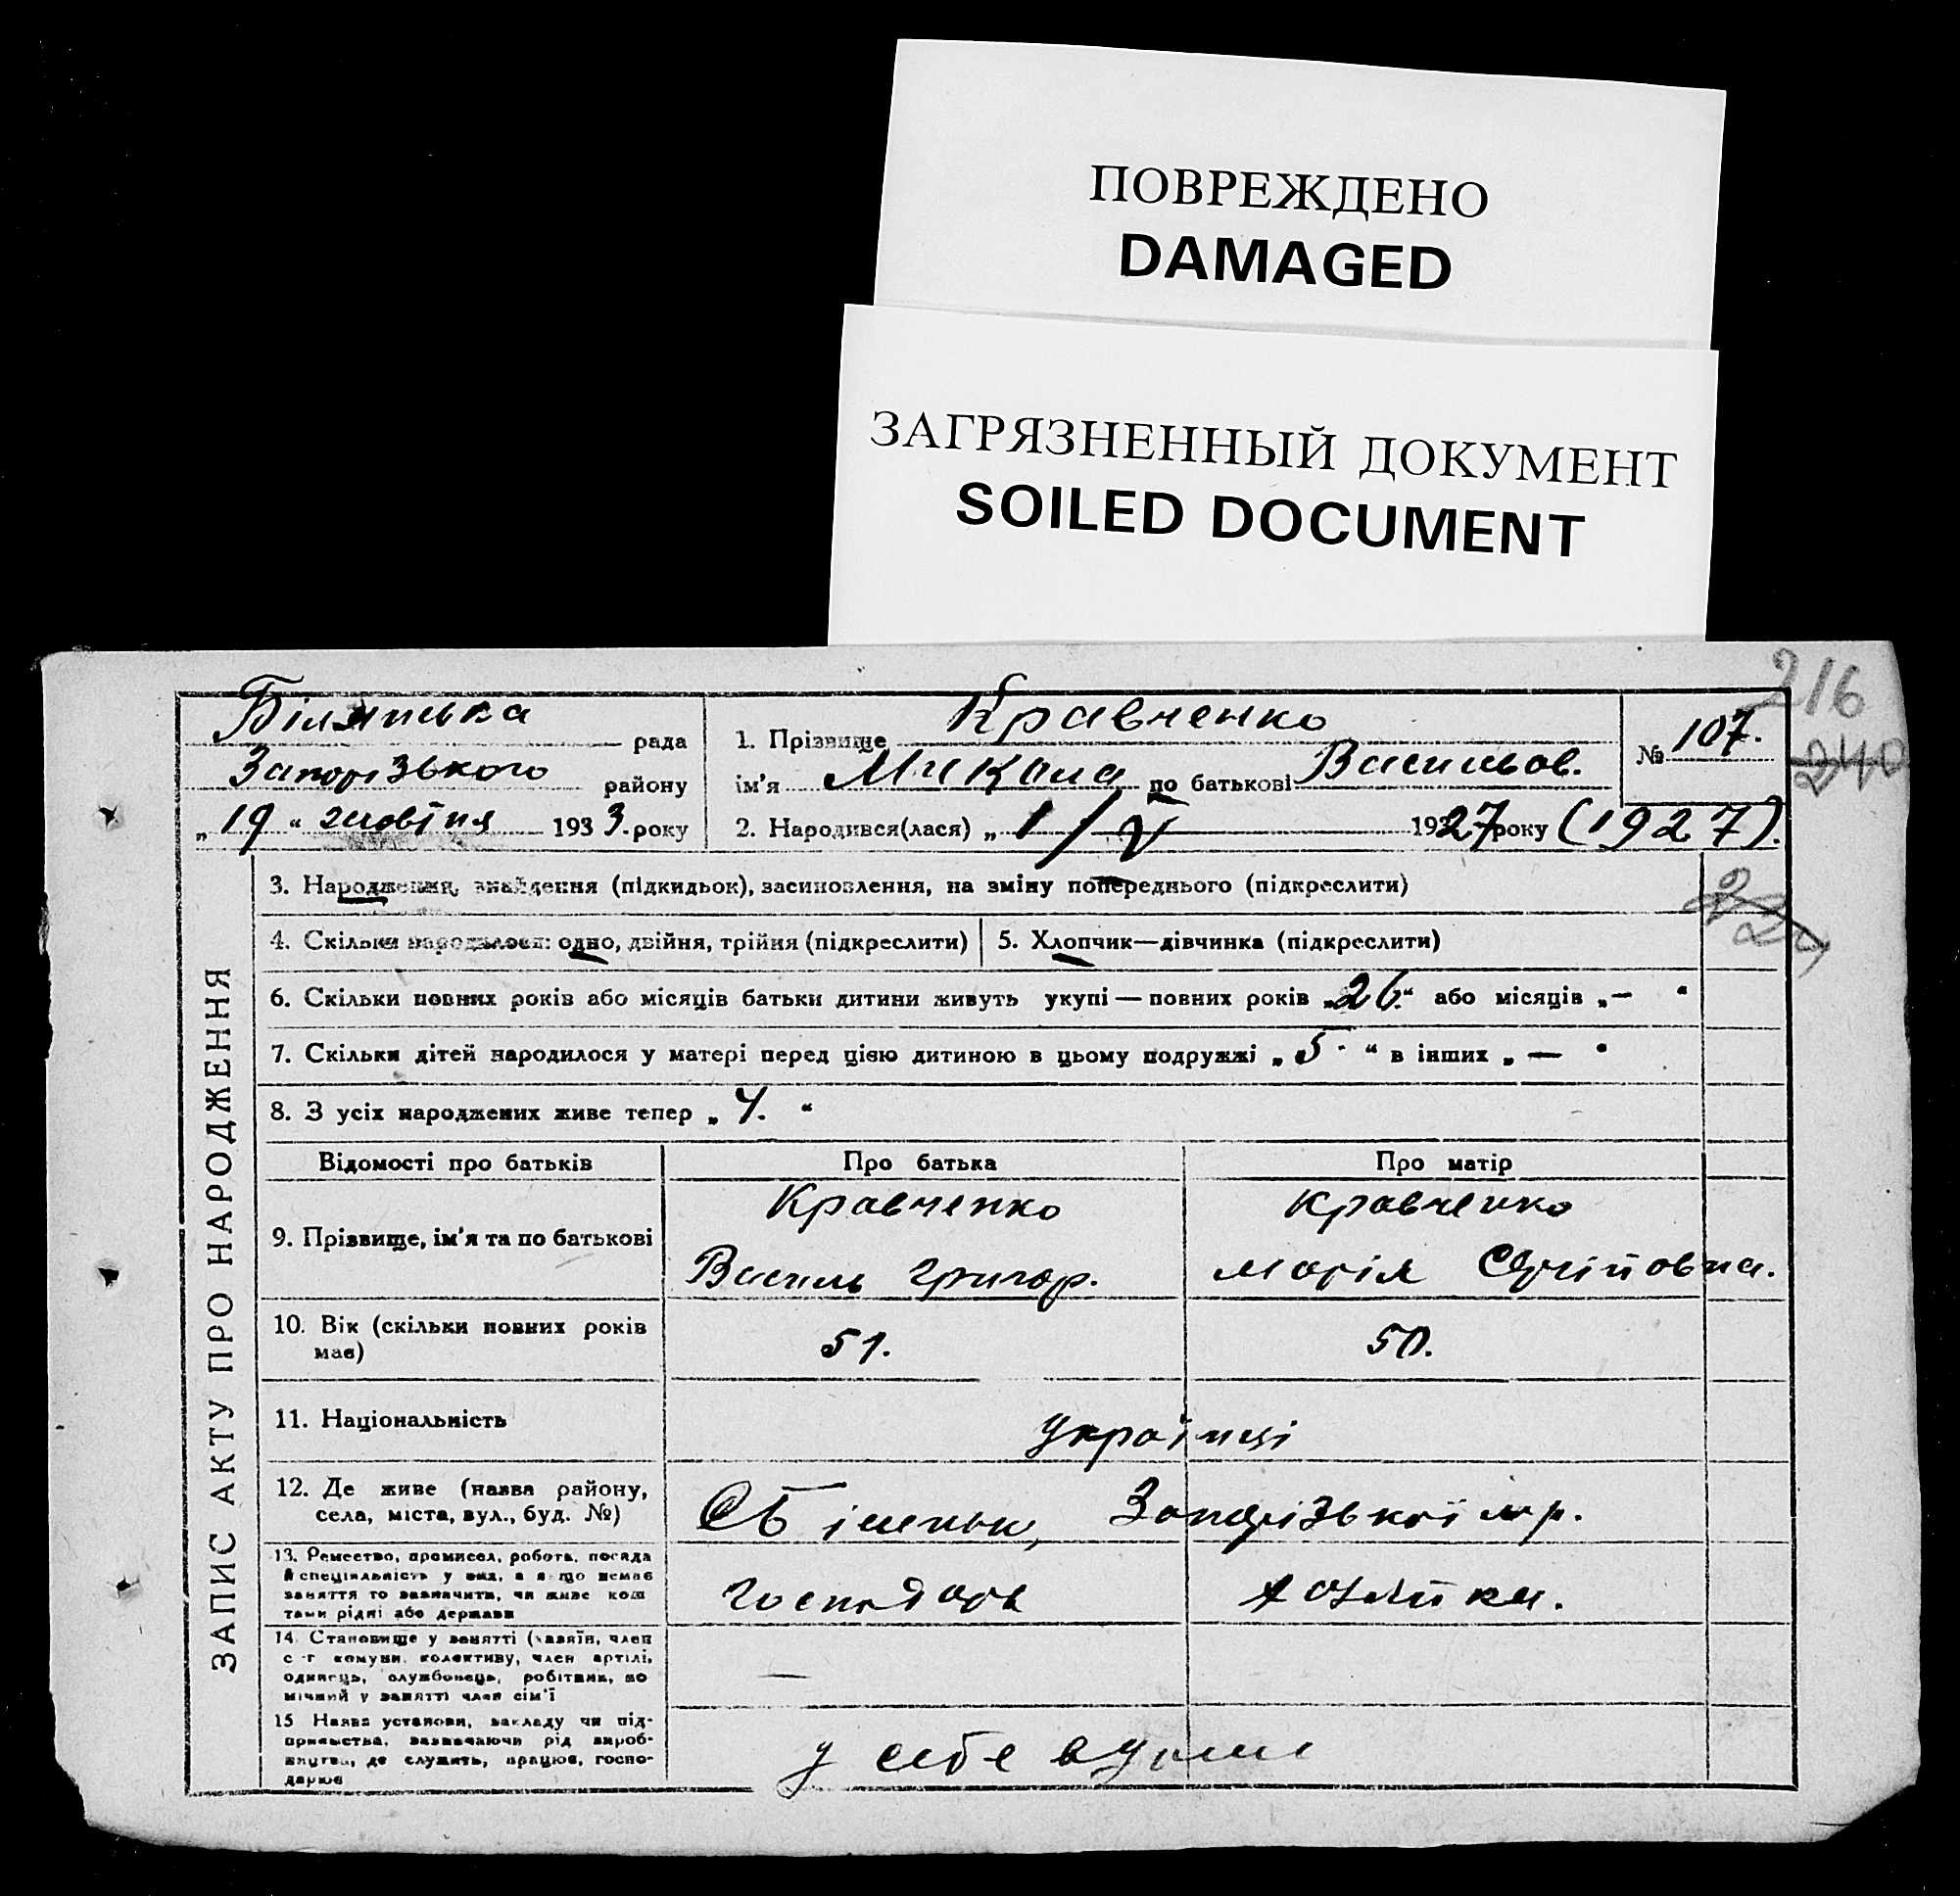 ПОВРЕЖДЕНО
DAMAGED
ЗАГРЯЗНЕННЫЙ ДОКУМЕНТ
SOILED DOCUMENT
216
240
рада
Запорізького району
„19“ жовтня 1933. року
1. Прізвище Кравченко
ім'я Микола по батькові Васильов.
№ 107.
2. Народився(лася) „1/V 1927 року (1927).
ЗАПИС АКТУ ПРО НАРОДЖЕННЯ
3. Народження, знайдення (підкидьок), засиновлення, на зміну попереднього (підкреслити)
4. Скільки народилося: одно, двійня, трійня (підкреслити)
5. Хлопчик—дівчинка (підкреслити)
6. Скільки повних років або місяців батьки дитини живуть укупі — повних років „26.“ або місяців „—“
7. Скільки дітей народилося у матері перед цією дитиною в цьому подружжі „5.“ в інших „—“
8. З усіх народжених живе тепер „4.“
Відомості про батьків
Про батька
Про матір
9. Прізвище, ім'я та по батькові
Кравченко
Василь Григор.
Кравченко
Марія
10. Вік (скільки повних років
має)
51.
50.
11. Національність
українці
12. Де живе (назва району,
села, міста, вул., буд. №)
13. Ремество, промисел, робота, посада
й спеціяльність у яка, а якщо немає
заняття то зазначити, чи живе кош
тами рідні або держави
господарь
14. Становище у занятті (хазяїн, член
с-г комуни, колективу, член артілі,
одинець, службовець, робітник, по
мічний у занятті член сім'ї
—
15 Назва установи, закладу чи під-
приємства, зазначаючи рід вироб-
ництва, де служить, працює, госпо-
дарює
у себе вдома